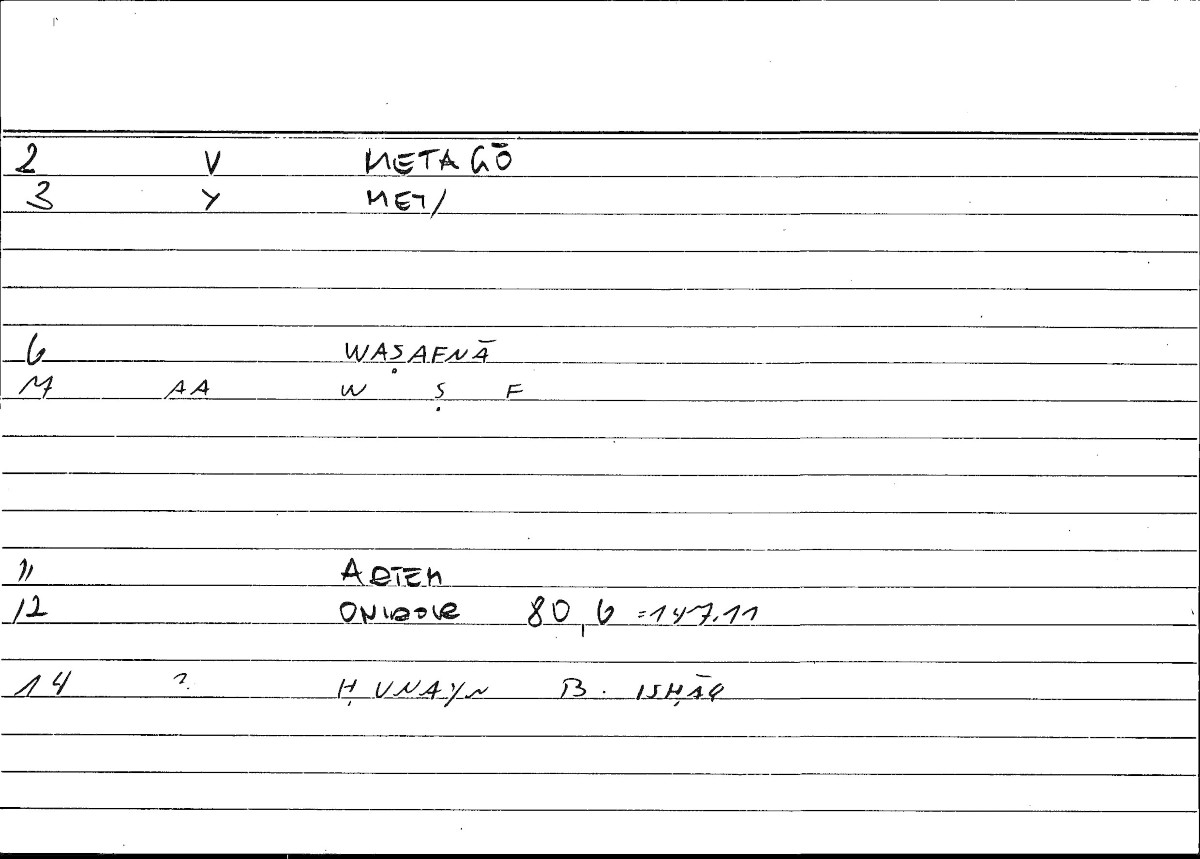 2 V METAGŌ
3 Y MET/
6 WAṢAFNĀ
M AA W Ṣ F
11 ARTEM
12 ONIROCR 80,6 =147.11
14 ? ḤUNAYN B. ISḤĀQ